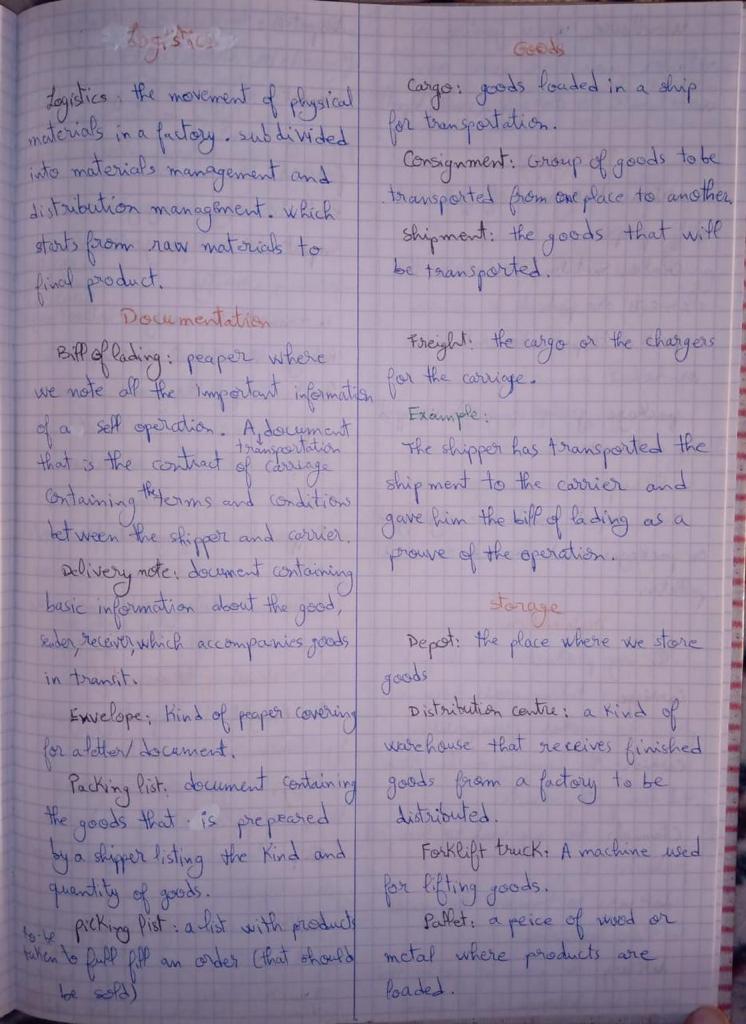 Logistics
Logistics: the movement of physical
materials in a factory. subdivided
into materials management and
distribution management. which
starts from raw materials to
final product.
Documentation
Bill of lading: peaper where
we note all the important information
of a sell operation. A document
that is the contract of transportation carriage
containing the terms and conditions
between the shipper and carrier.
Delivery note: document containing
basic information about the good,
sender, receiver, which accompanies goods
in transit.
Envelope: Kind of peaper covering
for a letter/document.
Packing list: document containing
the goods that is prepeared
by a shipper listing the kind and
quantity of goods.
picking list: a list with products
to be taken to full fill an order (that should
be sold)
Goods
Cargo: goods loaded in a ship
for transportation.
Consignment: Group of goods to be
transported from one place to another.
Shipment: the goods that will
be transported.
Freight: the cargo or the chargers
for the carriage.
Example:
The shipper has transported the
shipment to the carrier and
gave him the bill of lading as a
prouve of the operation.
storage
Depot: the place where we store
goods
Distribution centre: a Kind of
warehouse that receives finished
goods from a factory to be
distributed.
Forklift truck: A machine used
for lifting goods.
Pallet: a peice of wood or
metal where products are
loaded.